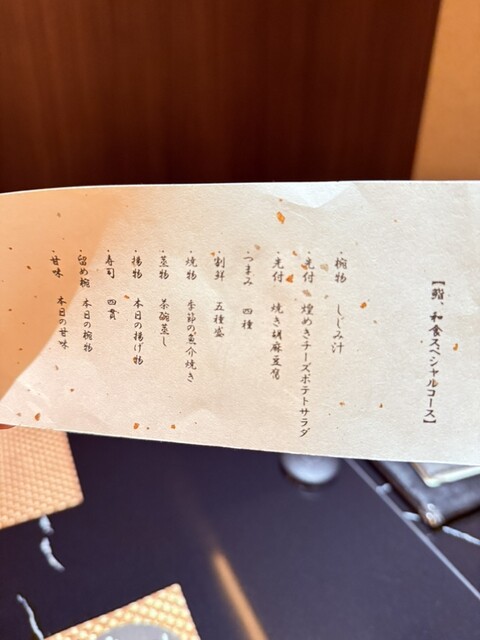 【鮨、和食スペシャルコース】
・椀物　しじみ汁
・先付　煌めきチーズポテトサラダ
・先付　焼き胡麻豆腐
・つまみ　四種
・割鮮　五種盛
・焼物　季節の魚介焼き
・蒸物　茶碗蒸し
・揚物　本日の揚げ物
・寿司　四貫
・留め椀　本日の椀物
・甘味　本日の甘味